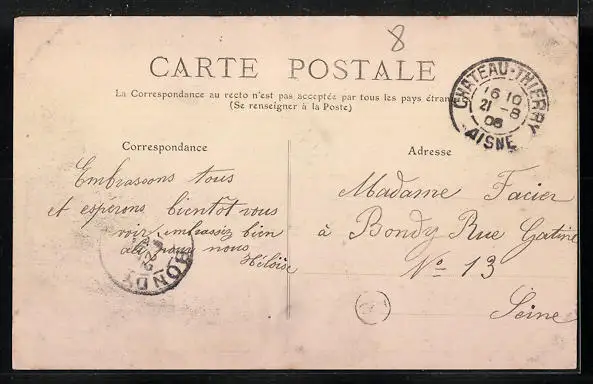 8
CARTE POSTALE
La Correspondance au recto n'est pas acceptée par tous les pays étran
(Se renseigner à la Poste)
CHATEAU-THIERRY
16 10
21 - 8
06
AISNE
Correspondance
Embrassons tous
et espérons bientôt vous
voir, embrassiz bien
pour nous
Héloïse
BONDY
Adresse
Madame Facier
à Bondy Rue Gatine
No 13
Seine